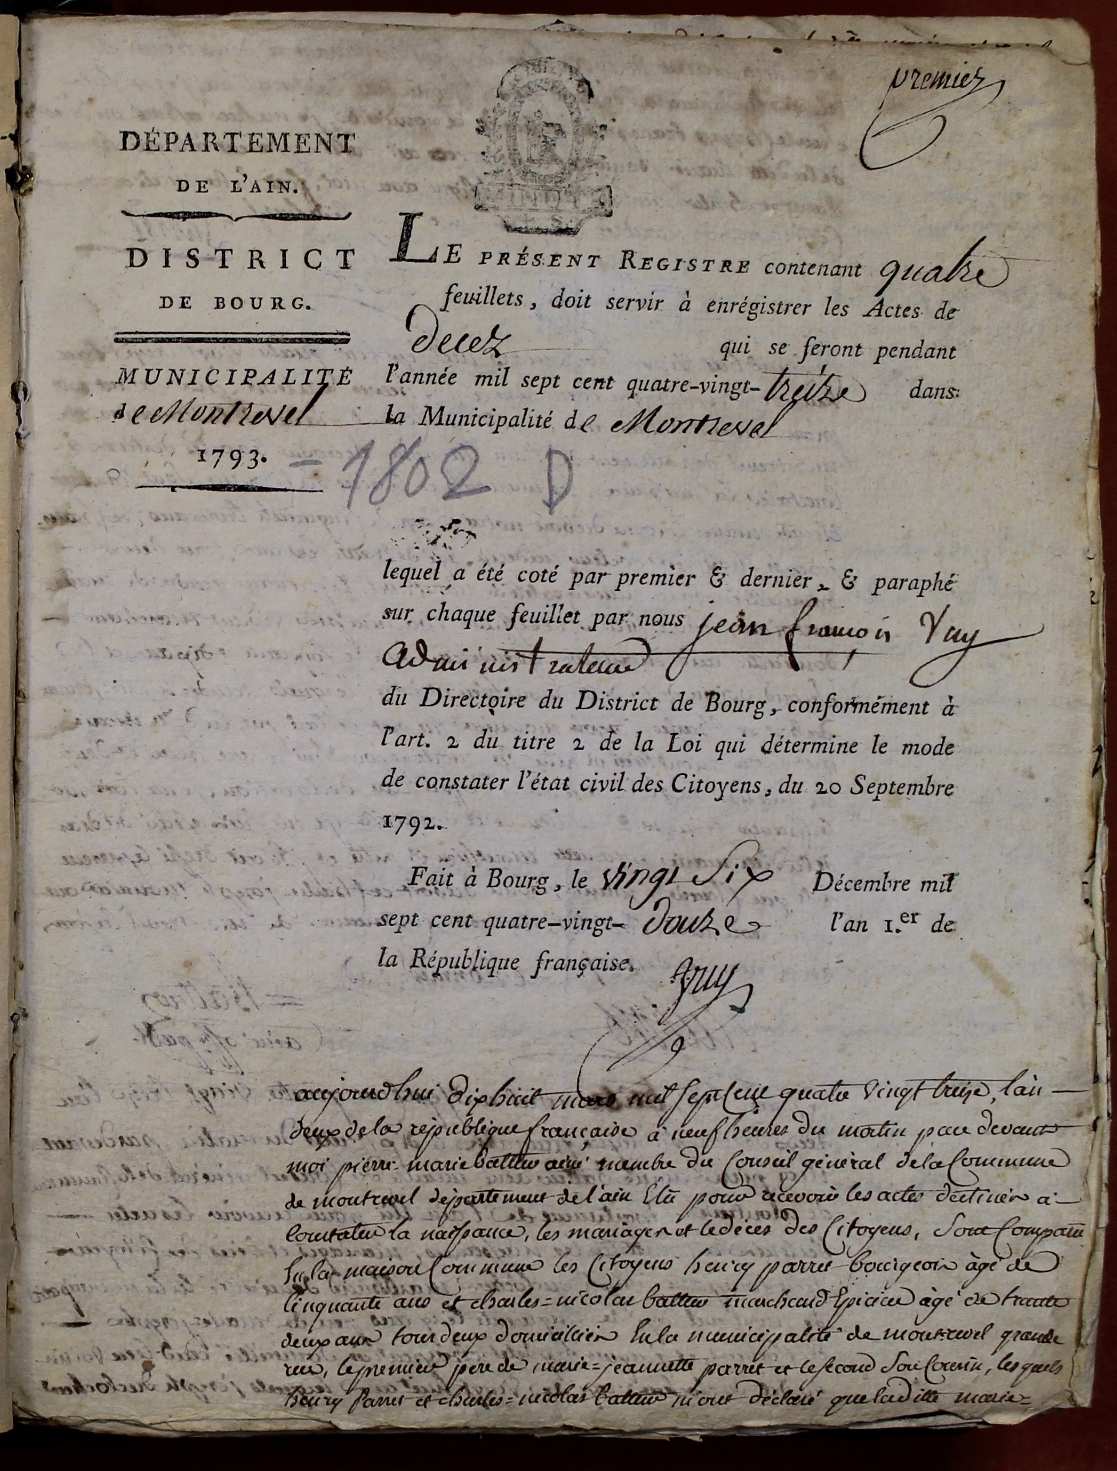 premier
DÉPARTEMENT
DE L'AIN.
DISTRICT
DE BOURG.
MUNICIPALITÉ
de Montrevel
1793. - 1802 D
LE PRÉSENT REGISTRE contenant quatre
feuillets, doit servir à enrégistrer les Actes de
decez qui se feront pendant
l'année mil sept cent quatre-vingt-treize dans
la Municipalité de Montrevel
lequel a été coté par premier & dernier, & paraphé
sur chaque feuillet par nous jean françois Vuy
administrateur
du Directoire du District de Bourg, conformément à
l'art. 2 du titre 2 de la Loi qui détermine le mode
de constater l'état civil des Citoyens, du 20 Septembre
1792.
Fait à Bourg, le vingt Six Décembre mil
sept cent quatre-vingt-douze l'an 1.er de
la République française.
Vuy
aujourdhui dixhuit mars mil sept cent quatre vingt treize, l'an
deux de la république française à neuf heures du matin par devant
moi pierre marie aîné membre du Conseil général de la Commune
de montrevel département de l'ain Elu pour recevoir les actes destinés a
Constater la naissance, les mariages et le décès des Citoyens, Sont Comparu
En la maison Commune les Citoyens henry parret bourgeois âgé de
Cinquante ans et charles=nicolas marchand Epicier âgé de trente
deux ans tous deux domiciliés En la municipalité de montrevel grande
rue, le premier père de marie=jeannette parret et le second Son Cousin, lesquels
henry Parret et charles=nicolas m'ont déclaré que laditte marie=